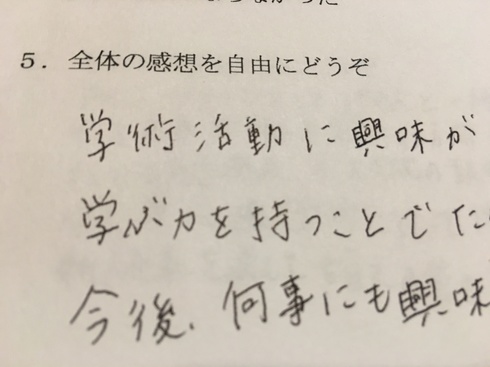 ５．全体の感想を自由にどうぞ
学術活動に興味が
学ぶ力を持つことでた
今後、何事にも興味